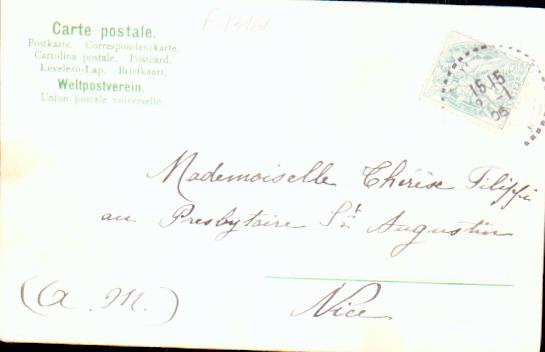 Carte postale.
Postkarte. Correspondenzkarte.
Cartolina postale. Postcard.
Levelezö-Lap. Briefkaart.
Weltpostverein.
Union postale universelle.
15 15
2 -1
06
Mademoiselle Thérèse Filippi
au Presbytaire St Augustin
Nice
(A. M.)